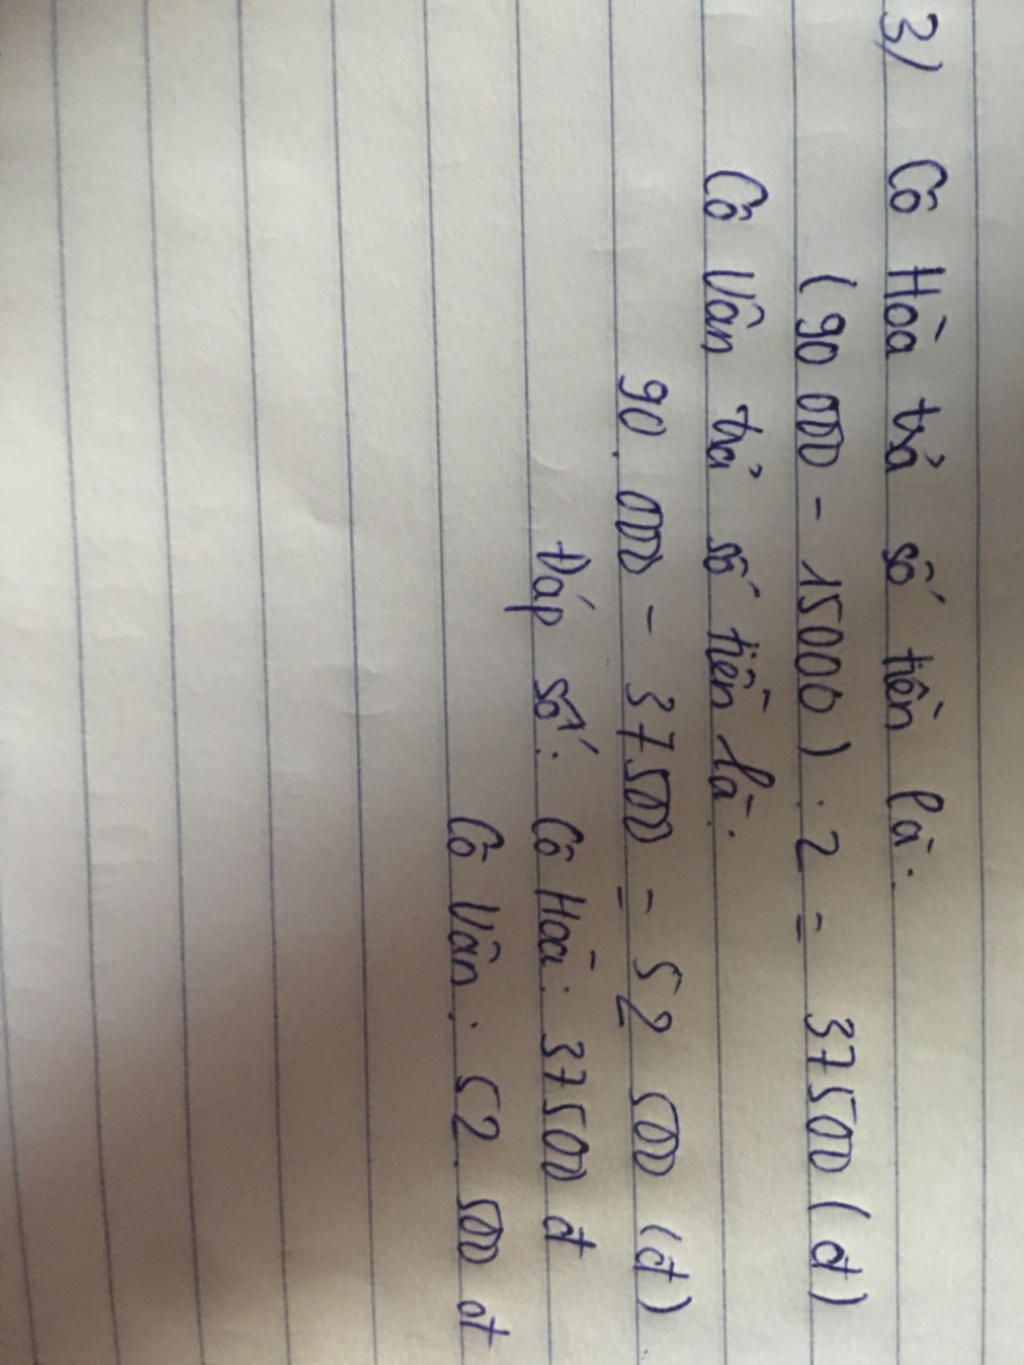 3) Cô Hòa trả số tiền là:
(90 000 - 15000) : 2 = 37500 (đ)
Cô Vân trả số tiền là:
90.000 - 37500 = 52 500 (đ)
Đáp số: Cô Hoà: 37500 đ
Cô Vân: 52.500 đ